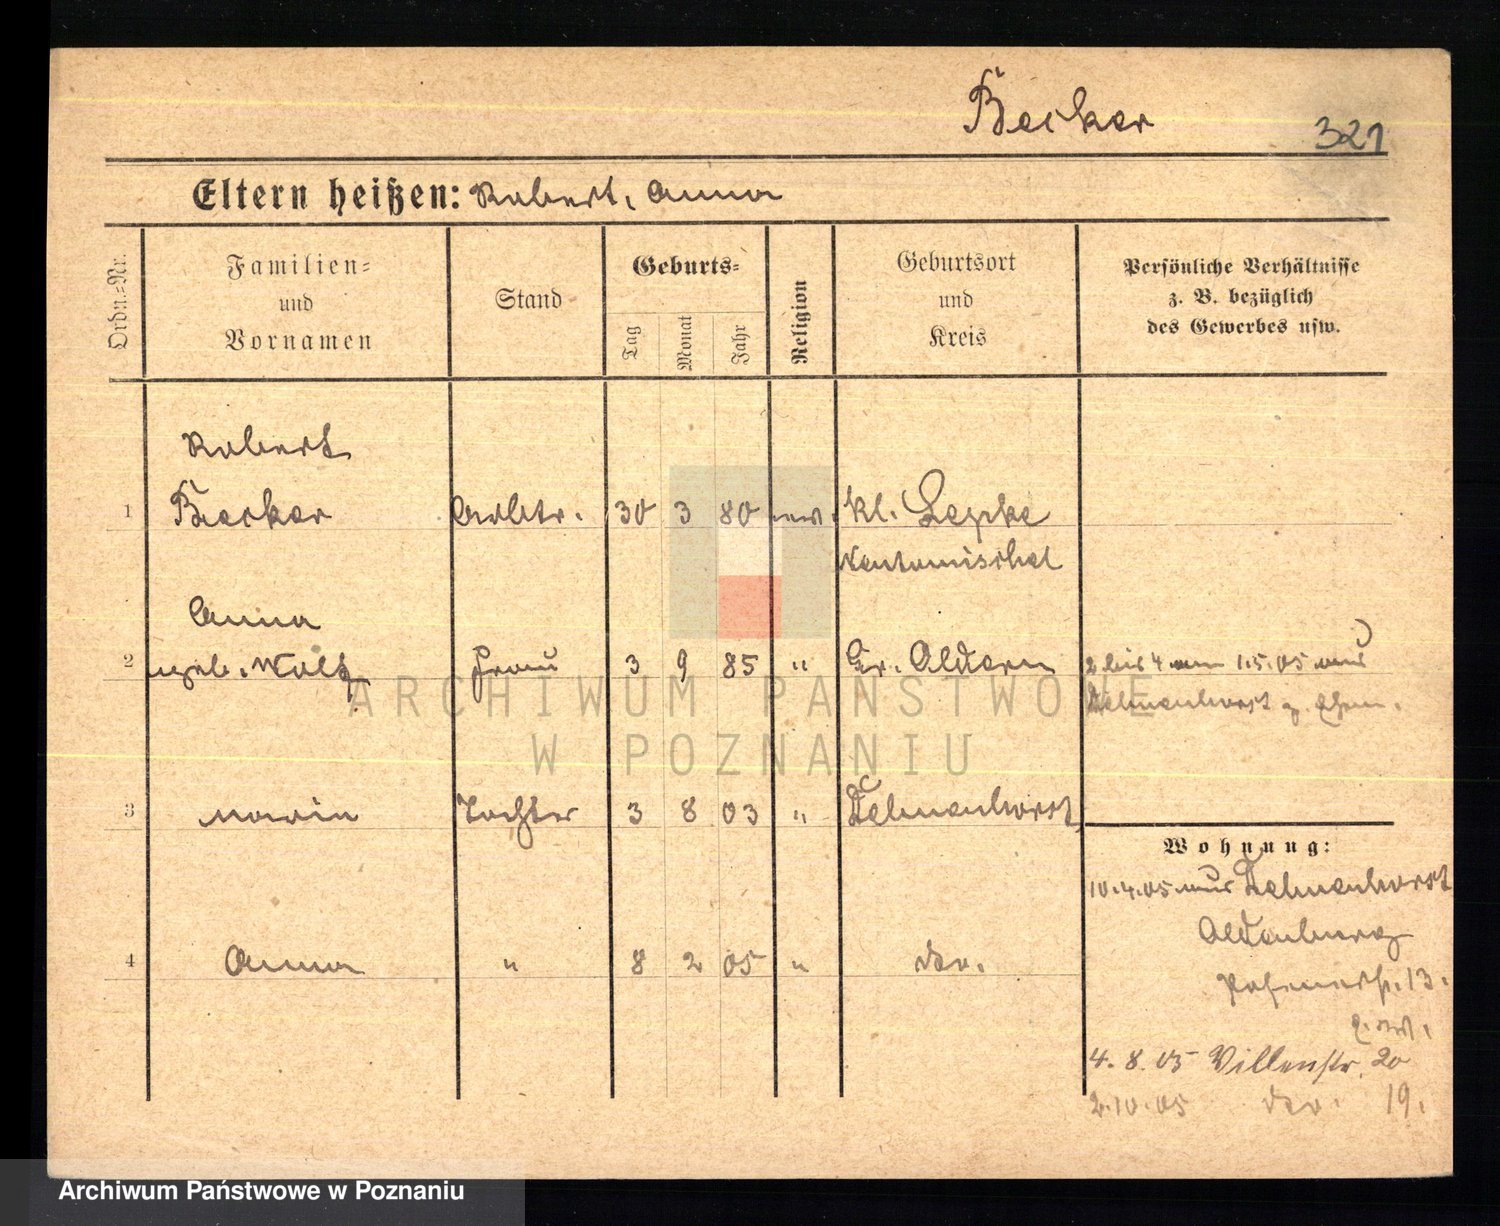 Becker
321
Eltern heißen: Robert, Anna
Ordn.=Nr.
Familien=
und
Vornamen
Stand
Geburts=
Tag
Monat
Jahr
Religion
Geburtsort
und
Kreis
Persönliche Verhältnisse
z. B. bezüglich
des Gewerbes usw.
Robert
1 Becker Arbtr. 30 3 80 kl. Lepke
Neutomischel
Anna
2 geb. Frau 3 9 85 " Gr. 2 bis 4 am 1.5.05 aus
Delmenhorst z.
3 Maria Tochter 3 8 03 " Delmenhorst
Wohnung:
10.4.05 aus Delmenhorst
Oldenburg
4 Anna " 8 2 05 " do.
13.
4. 8. 05 Villenstr. 20
2.10.05 do. 19.
ARCHIWUM PAŃSTWOWE
W POZNANIU
Archiwum Państwowe w Poznaniu